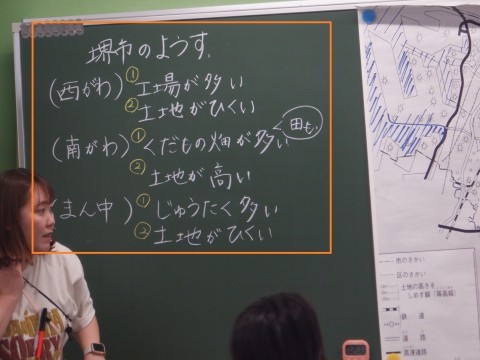 堺市のようす
(西がわ)①工場が多い
②土地がひくい
(南がわ)①くだもの畑が多い
田も
②土地が高い
(まん中)①じゅうたく多い
②土地がひくい
市のさかい
区のさかい
土地の高さを
しめす線(等高線)
鉄道
道路
高速道路